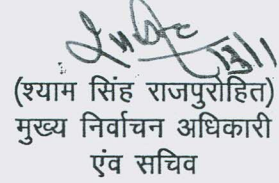 (श्याम सिंह राजपुरोहित)
मुख्य निर्वाचन अधिकारी
एंव सचिव